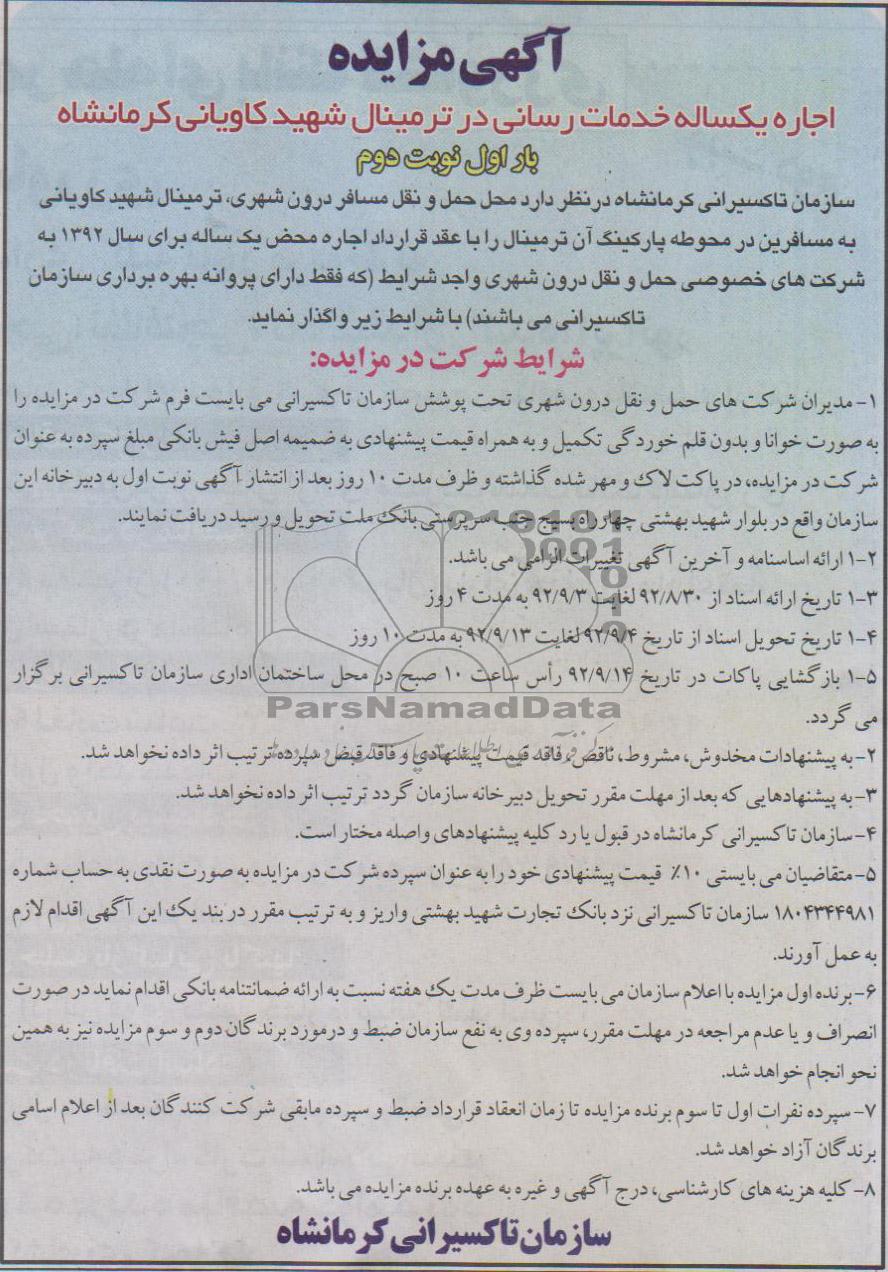 آگهی مزایده
اجاره یکساله خدمات رسانی در ترمینال شهید کاویانی کرمانشاه
بار اول نوبت دوم
سازمان تاکسیرانی کرمانشاه درنظر دارد محل حمل و نقل مسافر درون شهری، ترمینال شهید کاویانی
به مسافرین در محوطه پارکینگ آن ترمینال را با عقد قرارداد اجاره محض یک ساله برای سال ۱۳۹۲ به
شرکت های خصوصی حمل و نقل درون شهری واجد شرایط (که فقط دارای پروانه بهره برداری سازمان
تاکسیرانی می باشند) با شرایط زیر واگذار نماید.
شرایط شرکت در مزایده:
۱- مدیران شرکت های حمل و نقل درون شهری تحت پوشش سازمان تاکسیرانی می بایست فرم شرکت در مزایده را
به صورت خوانا و بدون قلم خوردگی تکمیل و به همراه قیمت پیشنهادی به ضمیمه اصل فیش بانکی مبلغ سپرده به عنوان
شرکت در مزایده، در پاکت لاک و مهر شده گذاشته و ظرف مدت ۱۰ روز بعد از انتشار آگهی نوبت اول به دبیرخانه این
سازمان واقع در بلوار شهید بهشتی چهارراه بسیج جنب سرپرستی بانک ملت تحویل و رسید دریافت نمایند.
۱-۲ ارائه اساسنامه و آخرین آگهی تغییرات الزامی می باشد.
۱-۳ تاریخ ارائه اسناد از ۹۲/۸/۳۰ لغایت ۹۲/۹/۳ به مدت ۴ روز
۱-۴ تاریخ تحویل اسناد از تاریخ ۹۲/۹/۴ لغایت ۹۲/۹/۱۳ به مدت ۱۰ روز
۱-۵ بازگشایی پاکات در تاریخ ۹۲/۹/۱۴ رأس ساعت ۱۰ صبح در محل ساختمان اداری سازمان تاکسیرانی برگزار
می گردد.
ParsNamadData
۲- به پیشنهادات مخدوش، مشروط، ناقص، فاقد قیمت پیشنهادی و فاقد قبض سپرده ترتیب اثر داده نخواهد شد.
۳- به پیشنهادهایی که بعد از مهلت مقرر تحویل دبیرخانه سازمان گردد ترتیب اثر داده نخواهد شد.
۴- سازمان تاکسیرانی کرمانشاه در قبول یا رد کلیه پیشنهادهای واصله مختار است.
۵- متقاضیان می بایستی ۱۰٪ قیمت پیشنهادی خود را به عنوان سپرده شرکت در مزایده به صورت نقدی به حساب شماره
۱۸۰۴۳۴۴۹۸۱ سازمان تاکسیرانی نزد بانک تجارت شهید بهشتی واریز و به ترتیب مقرر در بند یک این آگهی اقدام لازم
به عمل آورند.
۶- برنده اول مزایده با اعلام سازمان می بایست ظرف مدت یک هفته نسبت به ارائه ضمانتنامه بانکی اقدام نماید در صورت
انصراف و یا عدم مراجعه در مهلت مقرر، سپرده وی به نفع سازمان ضبط و درمورد برندگان دوم و سوم مزایده نیز به همین
نحو انجام خواهد شد.
۷- سپرده نفرات اول تا سوم برنده مزایده تا زمان انعقاد قرارداد ضبط و سپرده مابقی شرکت کنندگان بعد از اعلام اسامی
برندگان آزاد خواهد شد.
۸- کلیه هزینه های کارشناسی، درج آگهی و غیره به عهده برنده مزایده می باشد.
سازمان تاکسیرانی کرمانشاه